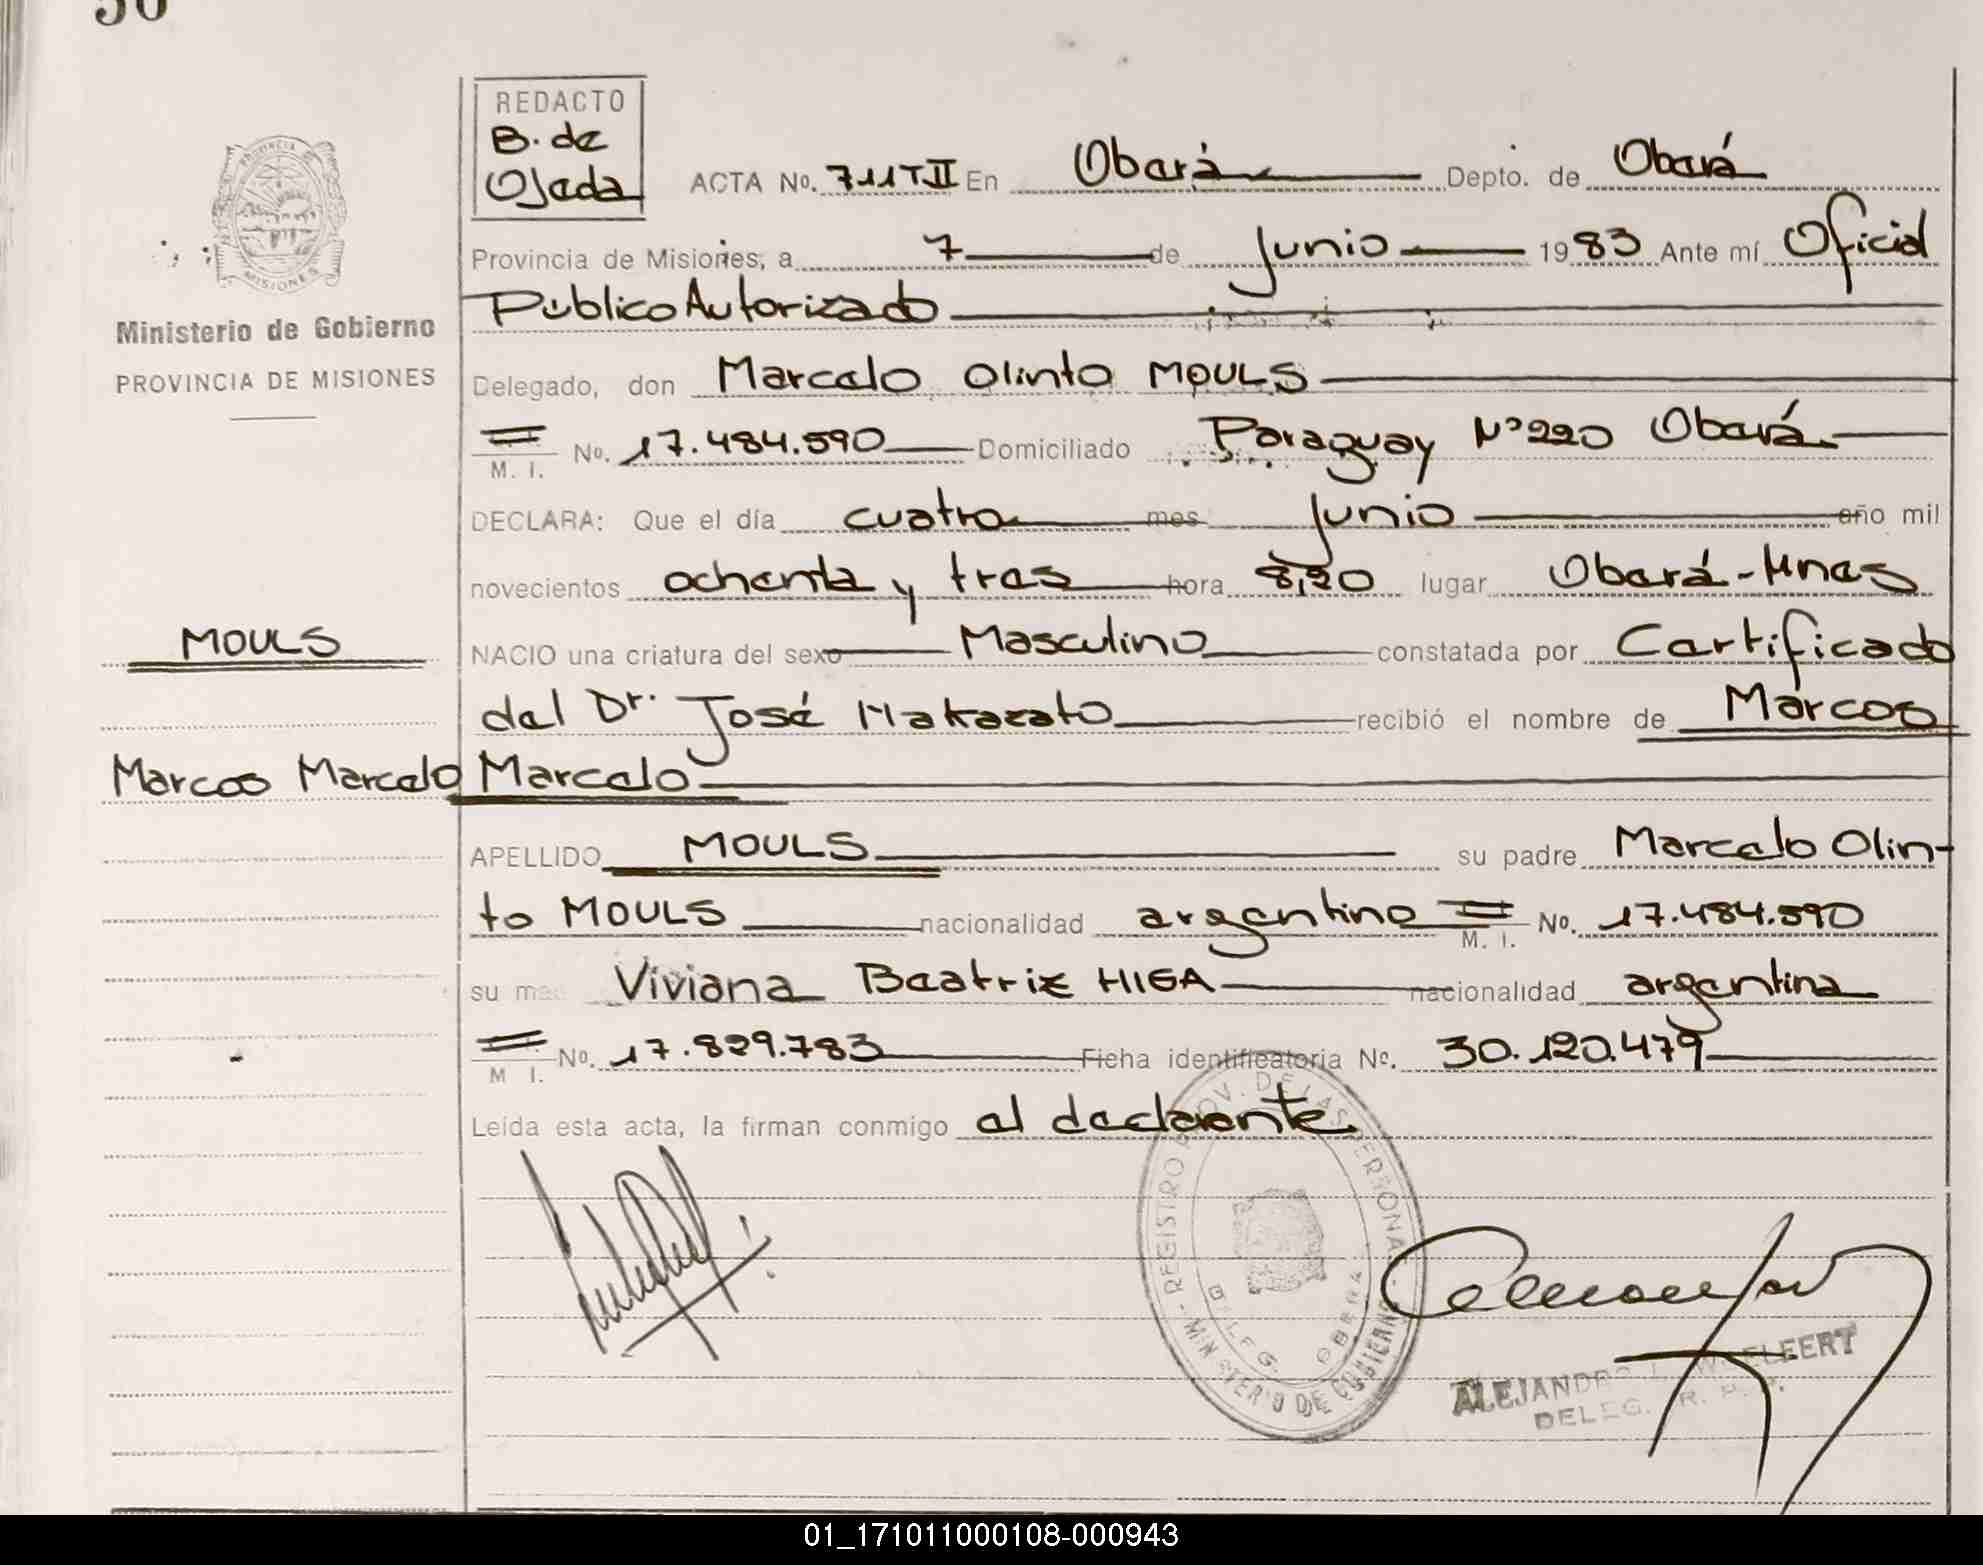 REDACTO
B. de
Ojeda
ACTA No. 711 T II En Oberá Depto. de Oberá
Provincia de Misiones, a 7 de Junio 1983 Ante mí Oficial
Público Autorizado
Delegado, don Marcelo Olinto MOULS
M. I. No. 17.484.590 Domiciliado Paraguay Nº 220 Oberá
DECLARA: Que el día cuatro mes Junio año mil
novecientos ochenta y tres hora 8,20 lugar Oberá-Mnes
NACIO una criatura del sexo Masculino constatada por Certificado
del Dr. José Nakazato recibió el nombre de Marcos
Marcelo
APELLIDO MOULS su padre Marcelo Olin-
to MOULS nacionalidad argentino M. I. No. 17.484.590
su mad Viviana Beatriz HIGA nacionalidad argentina
M I. No. 17.829.783 Ficha identificatoria No. 30.120.479
Leída esta acta, la firman conmigo el declarante.
PROVINCIA DE
MISIONES
Ministerio de Gobierno
PROVINCIA DE MISIONES
MOULS
Marcos Marcelo
REGISTRO PROV. DE LAS PERSONAS
MINISTERIO DE GOBIERNO
DELEG. OBERA
ALEJANDRO
DELEG. R. P. P.
01_171011000108-000943